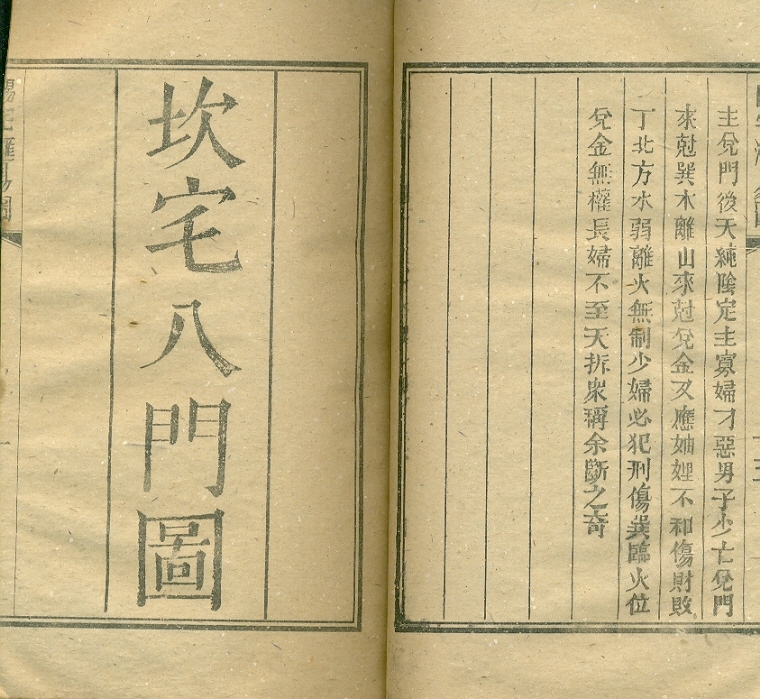 主兌門後天純陰定主寡婦才惡男子少亡兌門
來尅巽木離山來尅兌金又應妯娌不和傷財敗
丁北方水弱離火無制少婦必犯刑傷巽臨火位
兌金無權長婦不至夭折衆稱余斷之奇
坎宅八門圖